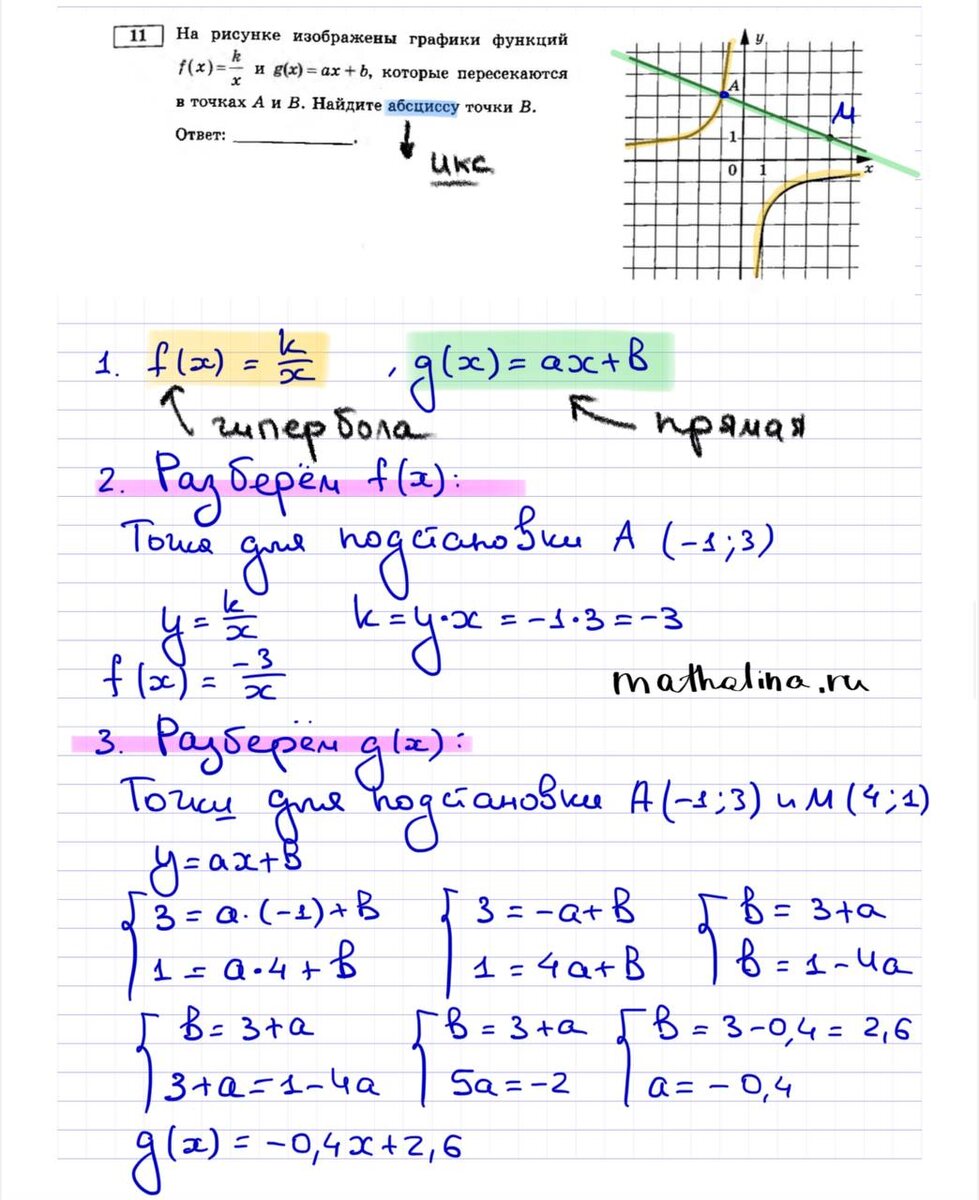 11 На рисунке изображены графики функций
f(x)=k/x и g(x)=ax+b, которые пересекаются
в точках A и B. Найдите абсциссу точки B.
Ответ: ____________.
икс
y
A
M
1
0 1 x
1. f(x) = k/x , g(x) = ax+b
гипербола прямая
2. Разберём f(x):
Точка для подстановки A (-1;3)
y = k/x k = y·x = -1·3 = -3
f(x) = -3/x
mathalina.ru
3. Разберём g(x):
Точки для подстановки A(-1;3) и M(4;1)
y = ax+b
{ 3 = a·(-1)+b { 3 = -a+b { b = 3+a
1 = a·4+b 1 = 4a+b b = 1-4a
{ b = 3+a { b = 3+a { b = 3-0,4 = 2,6
3+a = 1-4a 5a = -2 a = -0,4
g(x) = -0,4x+2,6